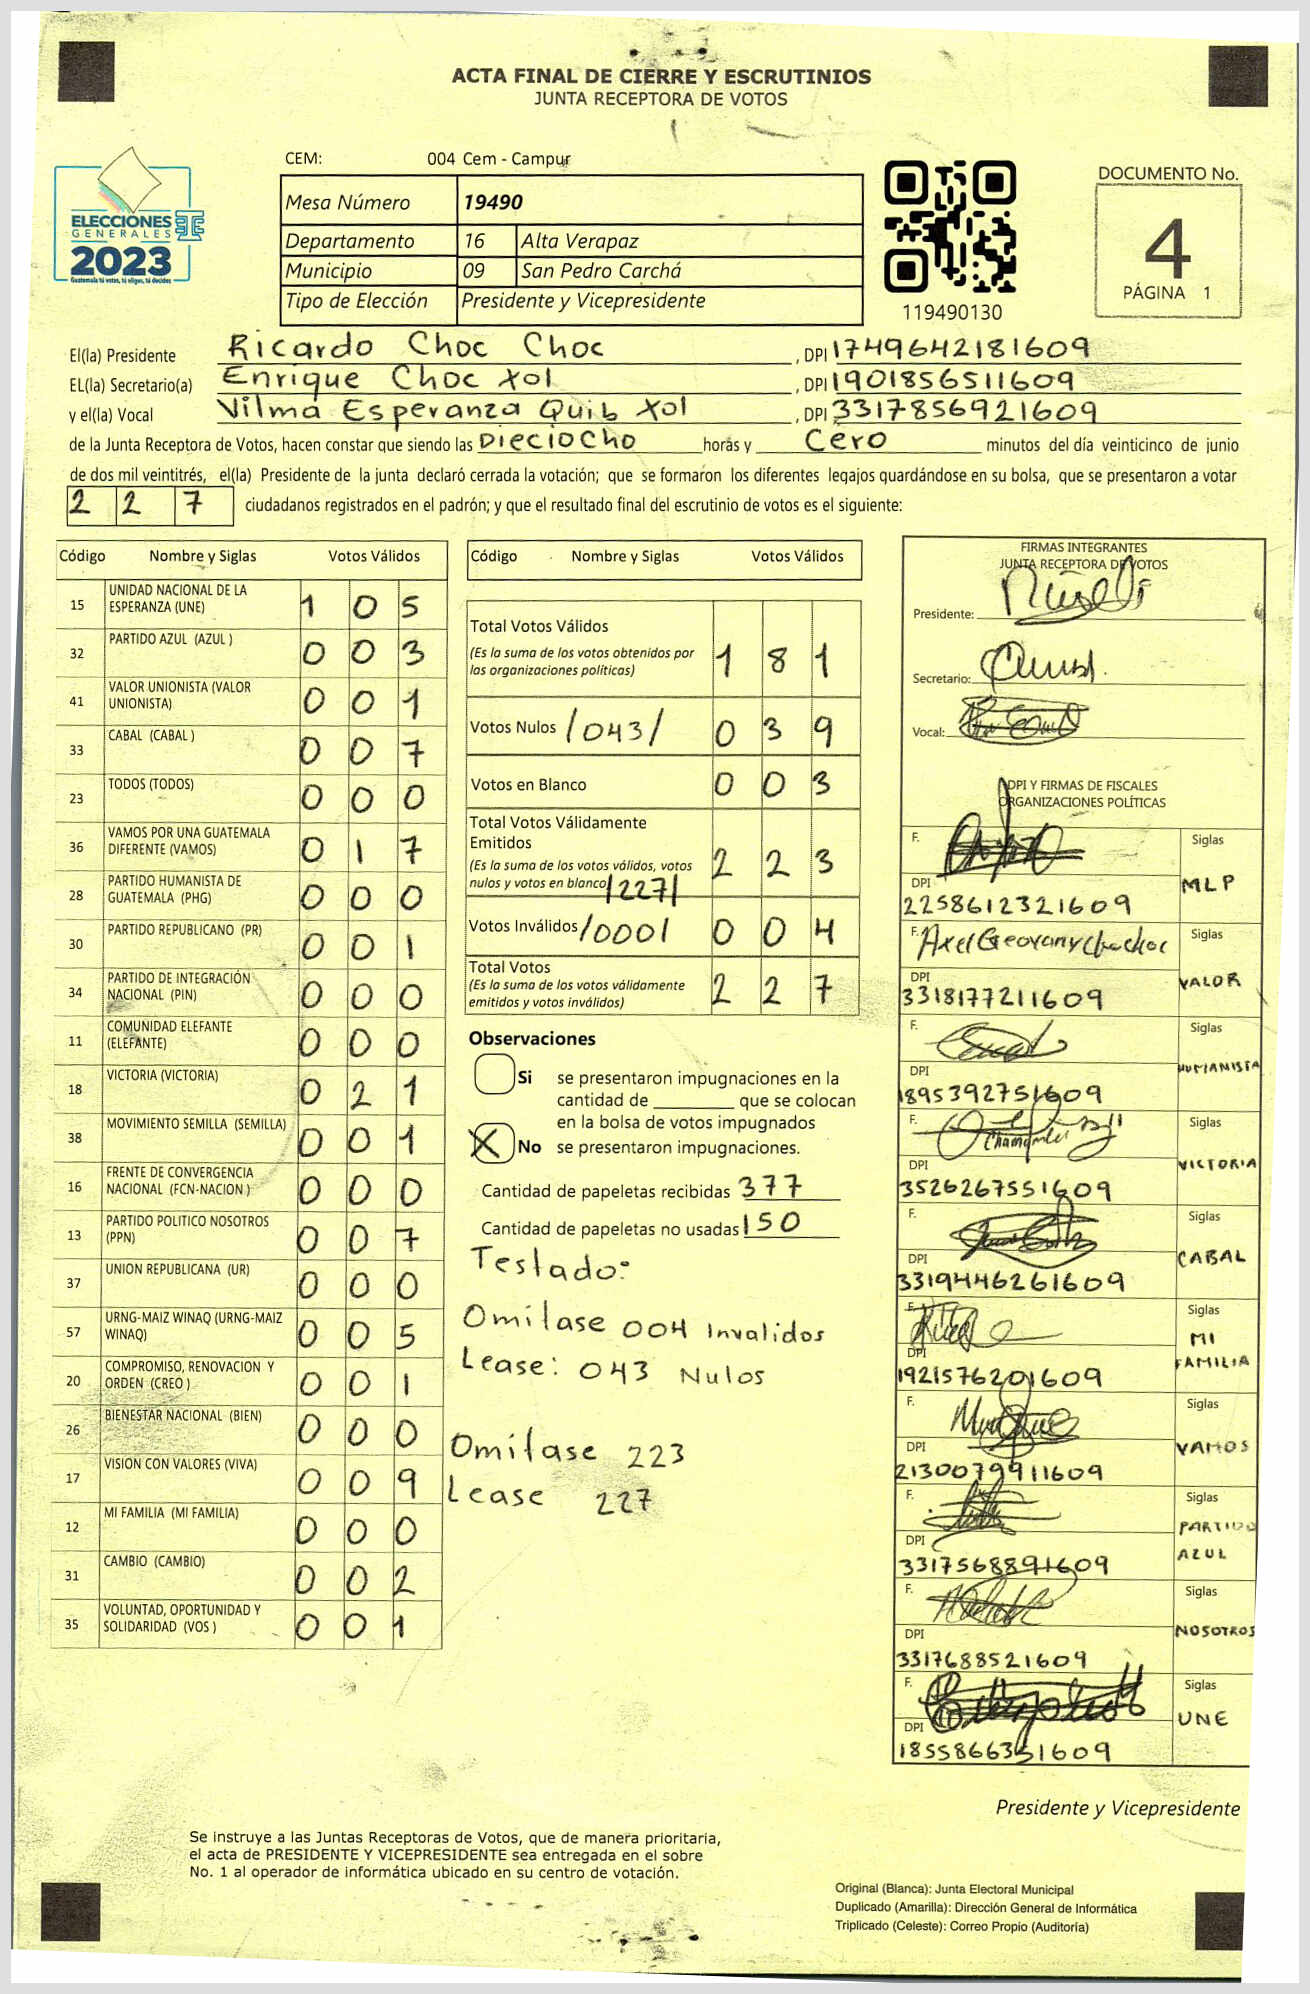 ACTA FINAL DE CIERRE Y ESCRUTINIOS
JUNTA RECEPTORA DE VOTOS
CEM: 004 Cem - Campur
ELECCIONES
GENERALES
2023
Guatemala tú votas, tú eliges, tú decides
Mesa Número 19490
Departamento 16 Alta Verapaz
Municipio 09 San Pedro Carchá
Tipo de Elección Presidente y Vicepresidente
119490130
DOCUMENTO No.
4
PÁGINA 1
El(la) Presidente Ricardo Choc Choc , DPI 1749642181609
EL(la) Secretario(a) Enrique Choc Xol , DPI 1901856511609
y el(la) Vocal Vilma Esperanza Quib Xol , DPI 3317856921609
de la Junta Receptora de Votos, hacen constar que siendo las Dieciocho horas y Cero minutos del día veinticinco de junio
de dos mil veintitrés, el(la) Presidente de la junta declaró cerrada la votación; que se formaron los diferentes legajos quardándose en su bolsa, que se presentaron a votar
2 2 7 ciudadanos registrados en el padrón; y que el resultado final del escrutinio de votos es el siguiente:
Código Nombre y Siglas Votos Válidos
15 UNIDAD NACIONAL DE LA ESPERANZA (UNE) 1 0 5
32 PARTIDO AZUL (AZUL ) 0 0 3
41 VALOR UNIONISTA (VALOR UNIONISTA) 0 0 1
33 CABAL (CABAL ) 0 0 7
23 TODOS (TODOS) 0 0 0
36 VAMOS POR UNA GUATEMALA DIFERENTE (VAMOS) 0 1 7
28 PARTIDO HUMANISTA DE GUATEMALA (PHG) 0 0 0
30 PARTIDO REPUBLICANO (PR) 0 0 1
34 PARTIDO DE INTEGRACIÓN NACIONAL (PIN) 0 0 0
11 COMUNIDAD ELEFANTE (ELEFANTE) 0 0 0
18 VICTORIA (VICTORIA) 0 2 1
38 MOVIMIENTO SEMILLA (SEMILLA) 0 0 1
16 FRENTE DE CONVERGENCIA NACIONAL (FCN-NACION ) 0 0 0
13 PARTIDO POLITICO NOSOTROS (PPN) 0 0 7
37 UNION REPUBLICANA (UR) 0 0 0
57 URNG-MAIZ WINAQ (URNG-MAIZ WINAQ) 0 0 5
20 COMPROMISO, RENOVACION Y ORDEN (CREO ) 0 0 1
26 BIENESTAR NACIONAL (BIEN) 0 0 0
17 VISION CON VALORES (VIVA) 0 0 9
12 MI FAMILIA (MI FAMILIA) 0 0 0
31 CAMBIO (CAMBIO) 0 0 2
35 VOLUNTAD, OPORTUNIDAD Y SOLIDARIDAD (VOS ) 0 0 1
Código Nombre y Siglas Votos Válidos
Total Votos Válidos 1 8 1
(Es la suma de los votos obtenidos por
las organizaciones políticas)
Votos Nulos /043/ 0 3 9
Votos en Blanco 0 0 3
Total Votos Válidamente
Emitidos 2 2 3
(Es la suma de los votos válidos, votos
nulos y votos en blanco /227/
Votos Inválidos /000/ 0 0 4
Total Votos 2 2 7
(Es la suma de los votos válidamente
emitidos y votos inválidos)
Observaciones
Si se presentaron impugnaciones en la
cantidad de ________ que se colocan
en la bolsa de votos impugnados
X No se presentaron impugnaciones.
Cantidad de papeletas recibidas 377
Cantidad de papeletas no usadas 150
Testado:
Omítase 004 Invalidos
Lease: 043 Nulos
Omítase 223
Lease 227
FIRMAS INTEGRANTES
JUNTA RECEPTORA DE VOTOS
Presidente:
Secretario:
Vocal:
DPI Y FIRMAS DE FISCALES
ORGANIZACIONES POLÍTICAS
F. Siglas
DPI MLP
2258612321609
F. Axel Geovany Siglas
DPI VALOR
3318177211609
F. Siglas
DPI HUMANISTA
1895392751609
F. Siglas
DPI VICTORIA
3526267551609
F. Siglas
DPI CABAL
3319446261609
F. Siglas
DPI MI FAMILIA
1921576201609
F. Siglas
DPI VAMOS
2130079911609
F. Siglas
DPI PARTIDO AZUL
3317568891609
F. Siglas
DPI NOSOTROS
3317688521609
F. Siglas
DPI UNE
1855866351609
Presidente y Vicepresidente
Se instruye a las Juntas Receptoras de Votos, que de manera prioritaria,
el acta de PRESIDENTE Y VICEPRESIDENTE sea entregada en el sobre
No. 1 al operador de informática ubicado en su centro de votación.
Original (Blanca): Junta Electoral Municipal
Duplicado (Amarilla): Dirección General de Informática
Triplicado (Celeste): Correo Propio (Auditoría)